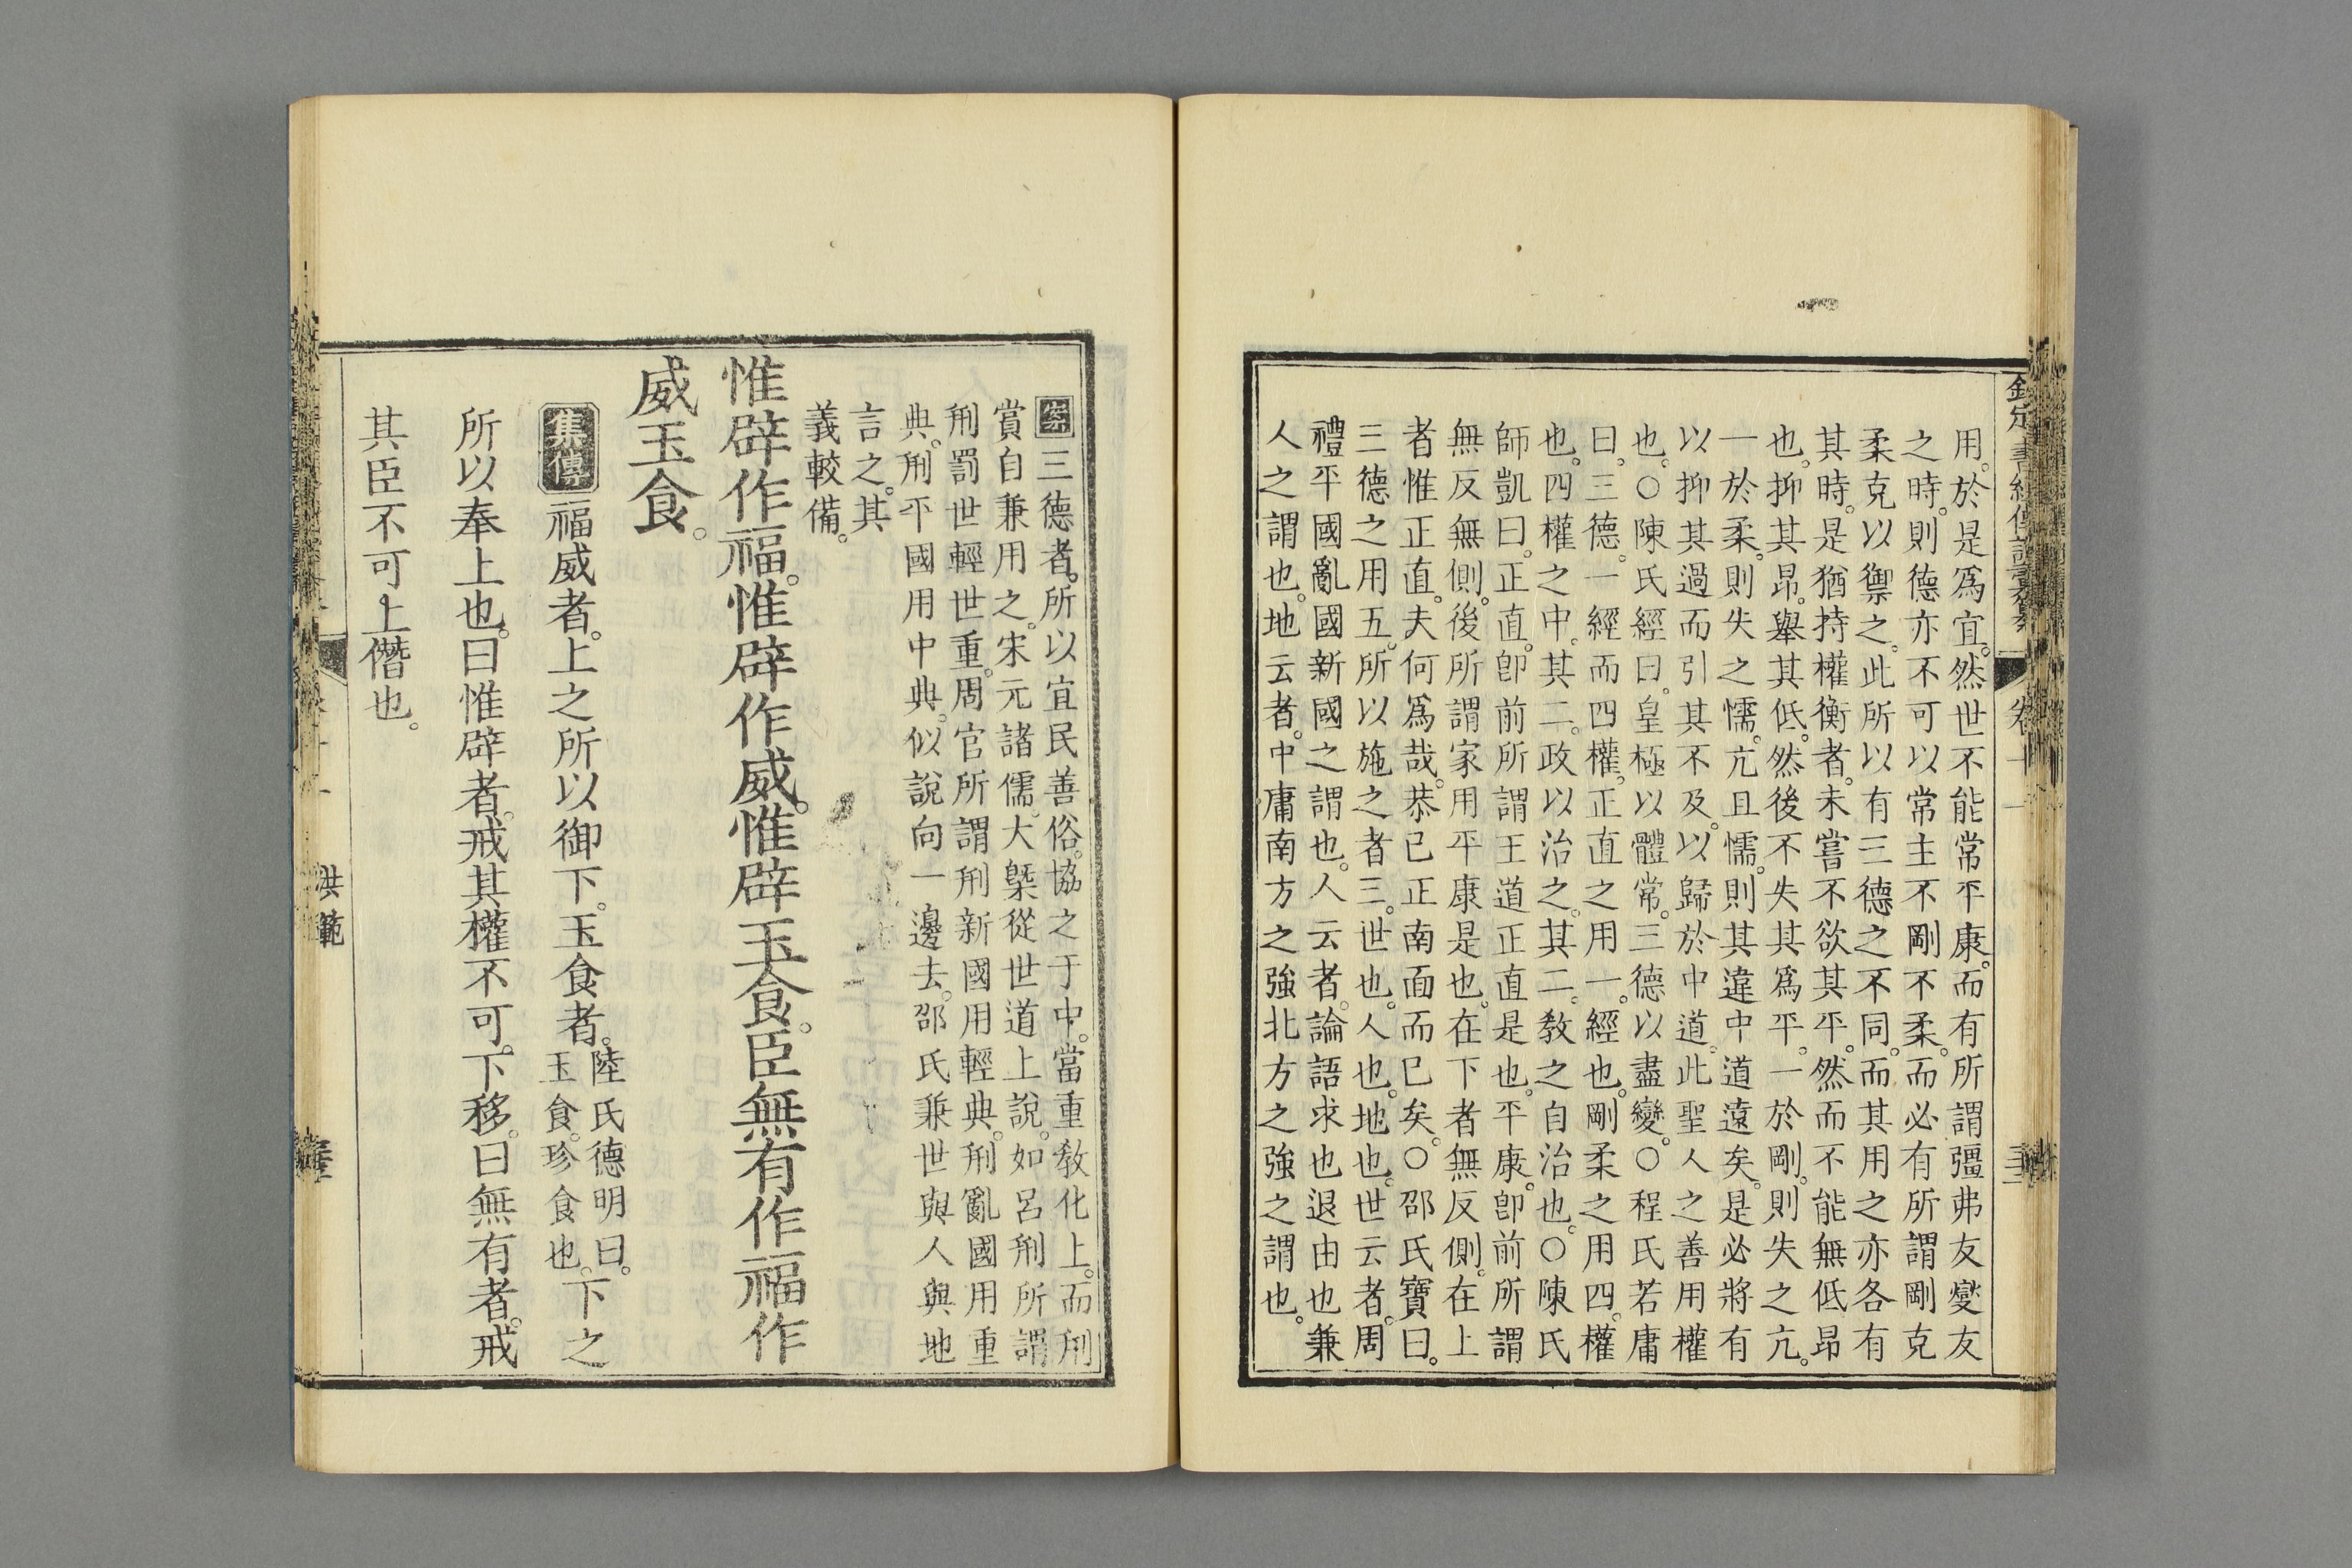 用。於是爲宜。然世不能常平康。而有所謂彊弗友燮友
之時。則德亦不可以常主不剛不柔。而必有所謂剛克
柔克以禦之。此所以有三德之不同。而其用之亦各有
其時。是猶持權衡者。未嘗不欲其平。然而不能無低昂
也。抑其昂。舉其低。然後不失其爲平。一於剛。則失之亢。
一於柔。則失之懦。亢且懦。則其違中道遠矣。是必將有
以抑其過而引其不及。以歸於中道。此聖人之善用權
也。○陳氏經曰。皇極以體常。三德以盡變。○程氏若庸
曰。三德。一經而四權。正直之用一。經也。剛柔之用四。權
也。四權之中。其二。政以治之。其二。敎之自治也。○陳氏
師凱曰。正直。卽前所謂王道正直是也。平康。卽前所謂
無反無側。後所謂家用平康是也。在下者無反側。在上
者惟正直。夫何爲哉。恭已正南面而已矣。○邵氏寶曰。
三德之用五。所以施之者三。世也。人也。地也。世云者。周
禮平國亂國新國之謂也。人云者。論語求也退由也兼
人之謂也。地云者。中庸南方之強北方之強之謂也。
案三德者。所以宜民善俗。協之于中。當重敎化上。而刑
賞自兼用之。宋元諸儒。大槩從世道上說。如呂刑所謂
刑罰世輕世重。周官所謂刑新國用輕典。刑亂國用重
典。刑平國用中典。似說向一邊去。邵氏兼世與人與地
言之。其
義較備。
惟辟作福。惟辟作威。惟辟玉食。臣無有作福作
威玉食。
集傳福威者。上之所以御下。玉食者。陸氏德明曰。玉食。珍食也。下之
所以奉上也。曰惟辟者。戒其權不可下移。曰無有者。戒
其臣不可上僭也。
洪範